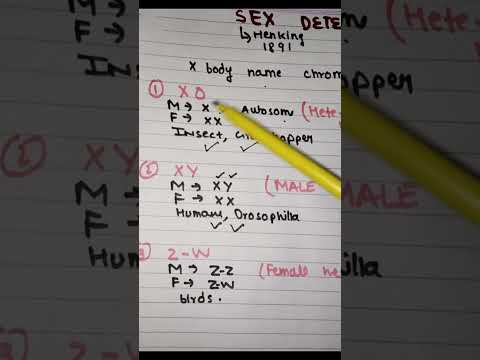 SEX DETE
↳ Henking
1891
X body name chrom
① XO
M → X Autosom (Hete
F → XX
Insect, hopper
✓ ✓
② XY ✓✓
M → XY (MALE
F → XX
Humans, Drosophilla
✓ ✓
③ Z-W
M → Z-Z (Female he
F → Z-W
birds.